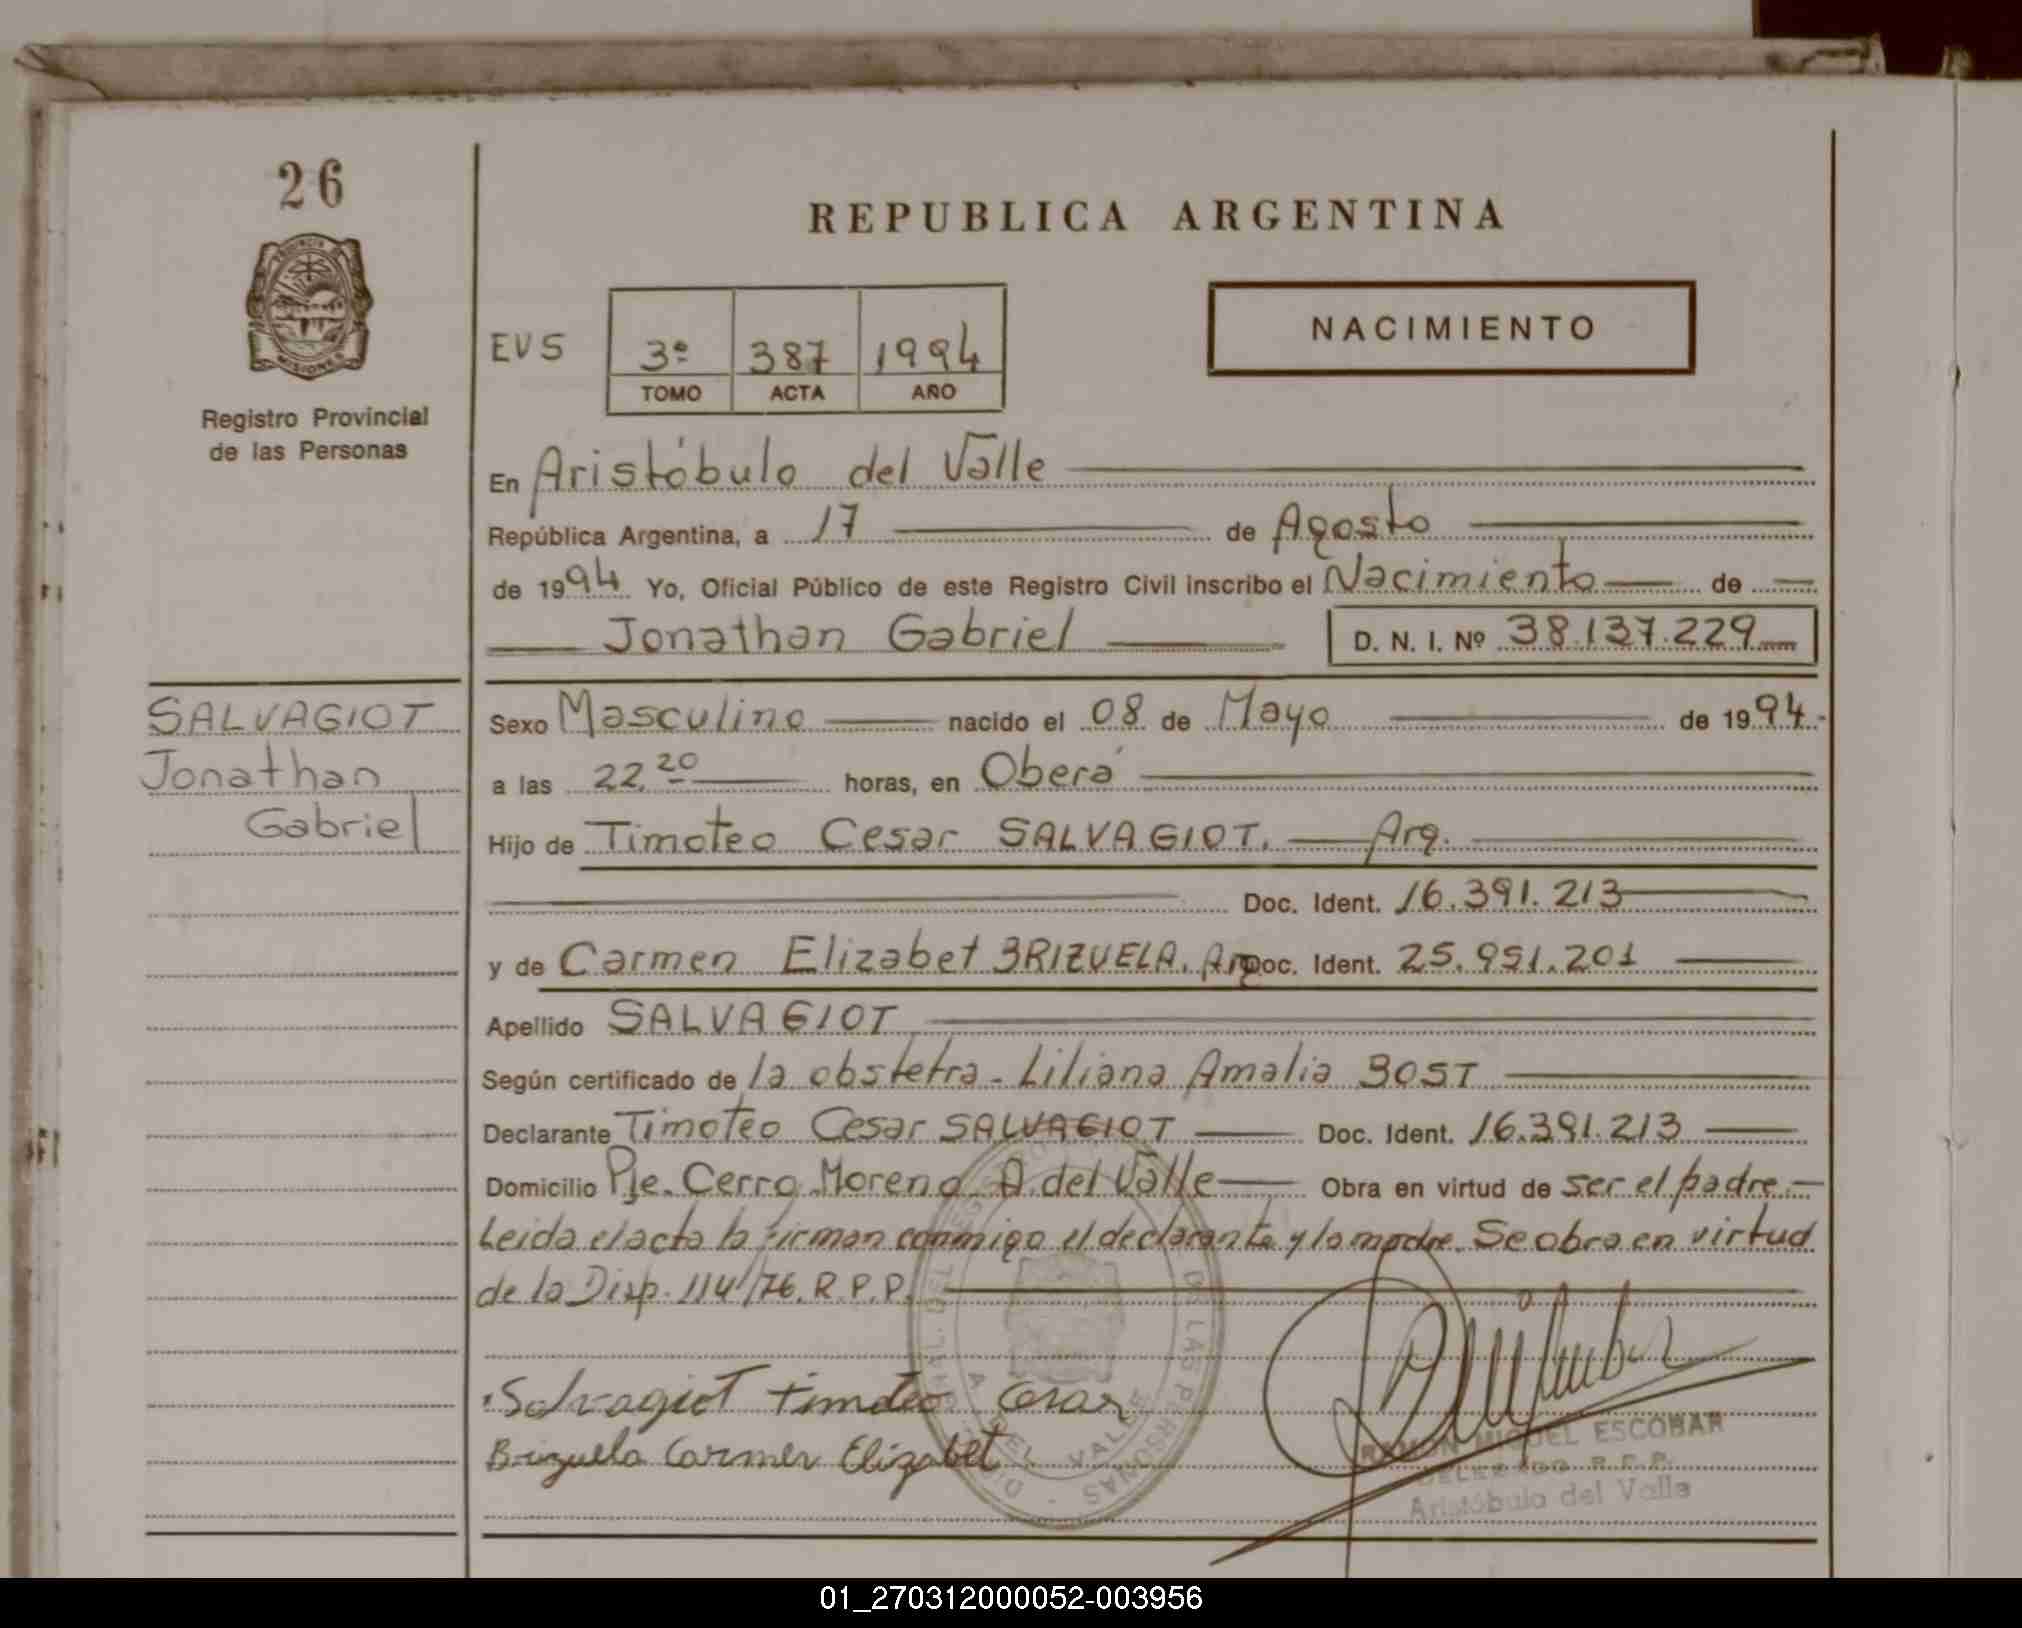 26
PROVINCIA DE
MISIONES
Registro Provincial
de las Personas
SALVAGIOT
Jonathan
Gabriel
REPUBLICA ARGENTINA
NACIMIENTO
EVS
3º 387 1994
TOMO ACTA AÑO
En Aristóbulo del Valle
República Argentina, a 17 de Agosto
de 1994 Yo, Oficial Público de este Registro Civil inscribo el Nacimiento de
Jonathan Gabriel D. N. I. Nº 38.137.229
Sexo Masculino nacido el 08 de Mayo de 1994.
a las 22.20 horas, en Oberá
Hijo de Timoteo Cesar SALVAGIOT. Arg.
Doc. Ident. 16.391.213
y de Carmen Elizabet BRIZUELA. Arg Doc. Ident. 25.951.201
Apellido SALVAGIOT
Según certificado de la obstetra - Liliana Amalia BOST
Declarante Timoteo Cesar SALVAGIOT Doc. Ident. 16.391.213
Domicilio Pje. Cerro Moreno A. del Valle Obra en virtud de ser el padre.-
Leida el acta la firman conmigo el declarante y la madre. Se obra en virtud
de la Disp. 114/76. R.P.P.
Salvagiot timoteo Cesar
Brizuela Carmen Elizabet
RAMON MIGUEL ESCOBAR
DELEGADO R.P.P.
Aristóbulo del Valle
01_270312000052-003956